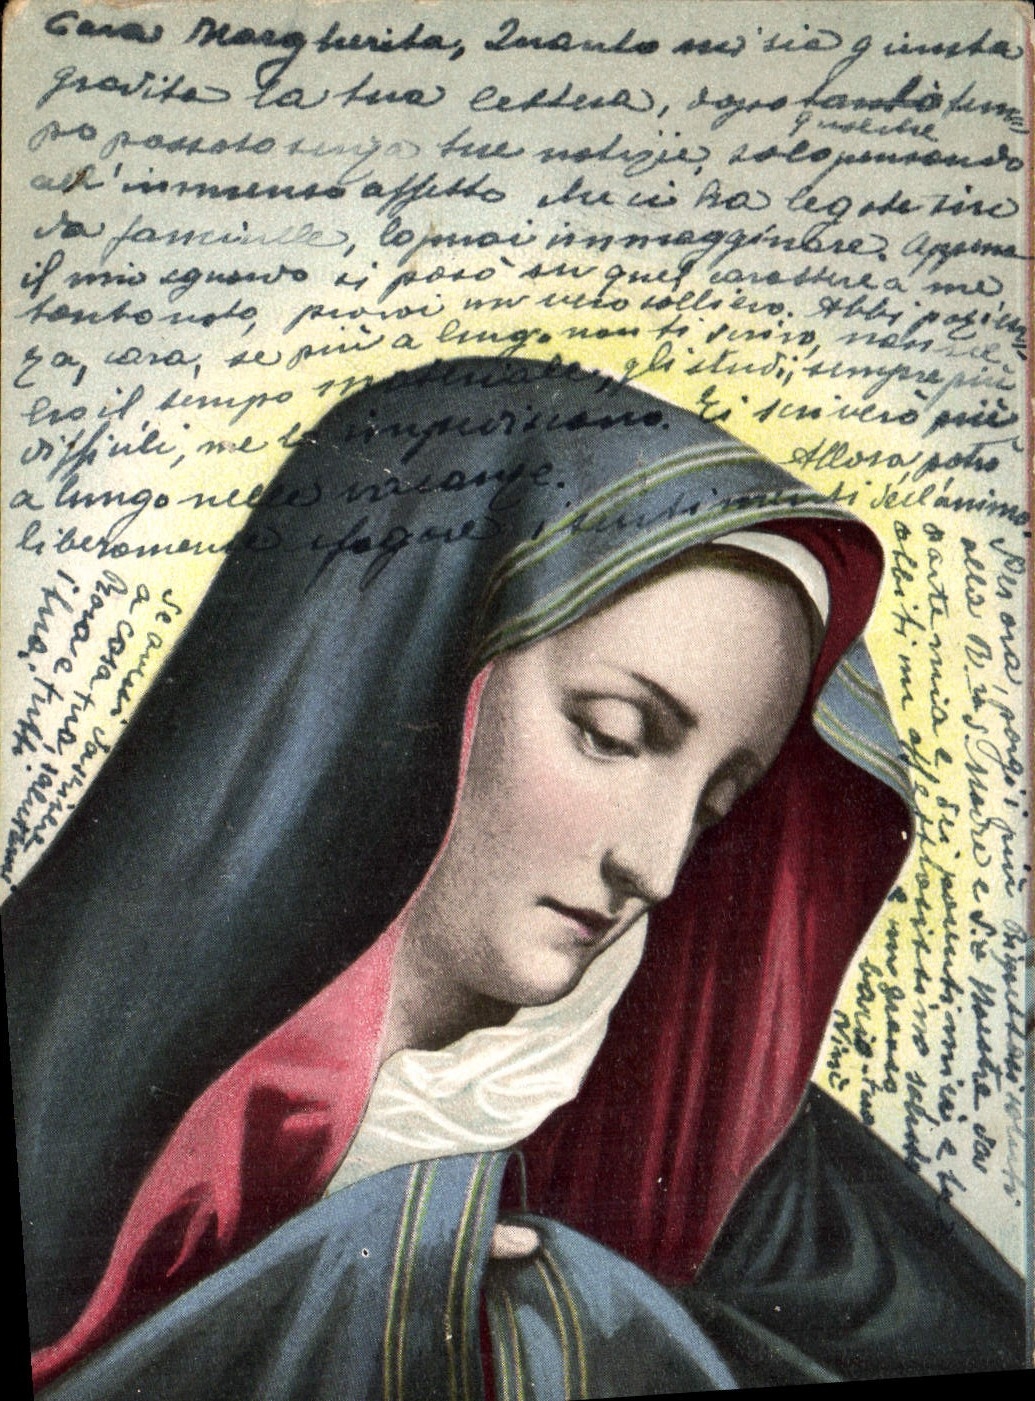 Cara Margherita, Quanto mi sia giunta
gradita la tua lettera, dopo tanto tem=
po passato senza tue notizie, solo pensando
all'immenso affetto che ci ha legate sin
da fanciulle, lo puoi immagginare. Appena
il mio sguardo si posò su quel carattere a me
tanto noto, provai un vero sollievo. Abbi pazien
za, cara, se più a lungo non ti scrivo, non è
il tempo materiale, gli studi, sempre più
difficili, me lo impediscono. Ti scriverò più
a lungo nelle vacanze. Allora, potrò
liberamente sfogare i sentimenti dell'animo.
Per ora, porgi i più saluti
alla tua Madre e da
parte mia e dei parenti miei e tu
abbiti un affettuosissimo saluto
e un grosso
bacio tua
Ninì
Se anui
a casa tua,
Rosa e tua
i tuoi tutti.